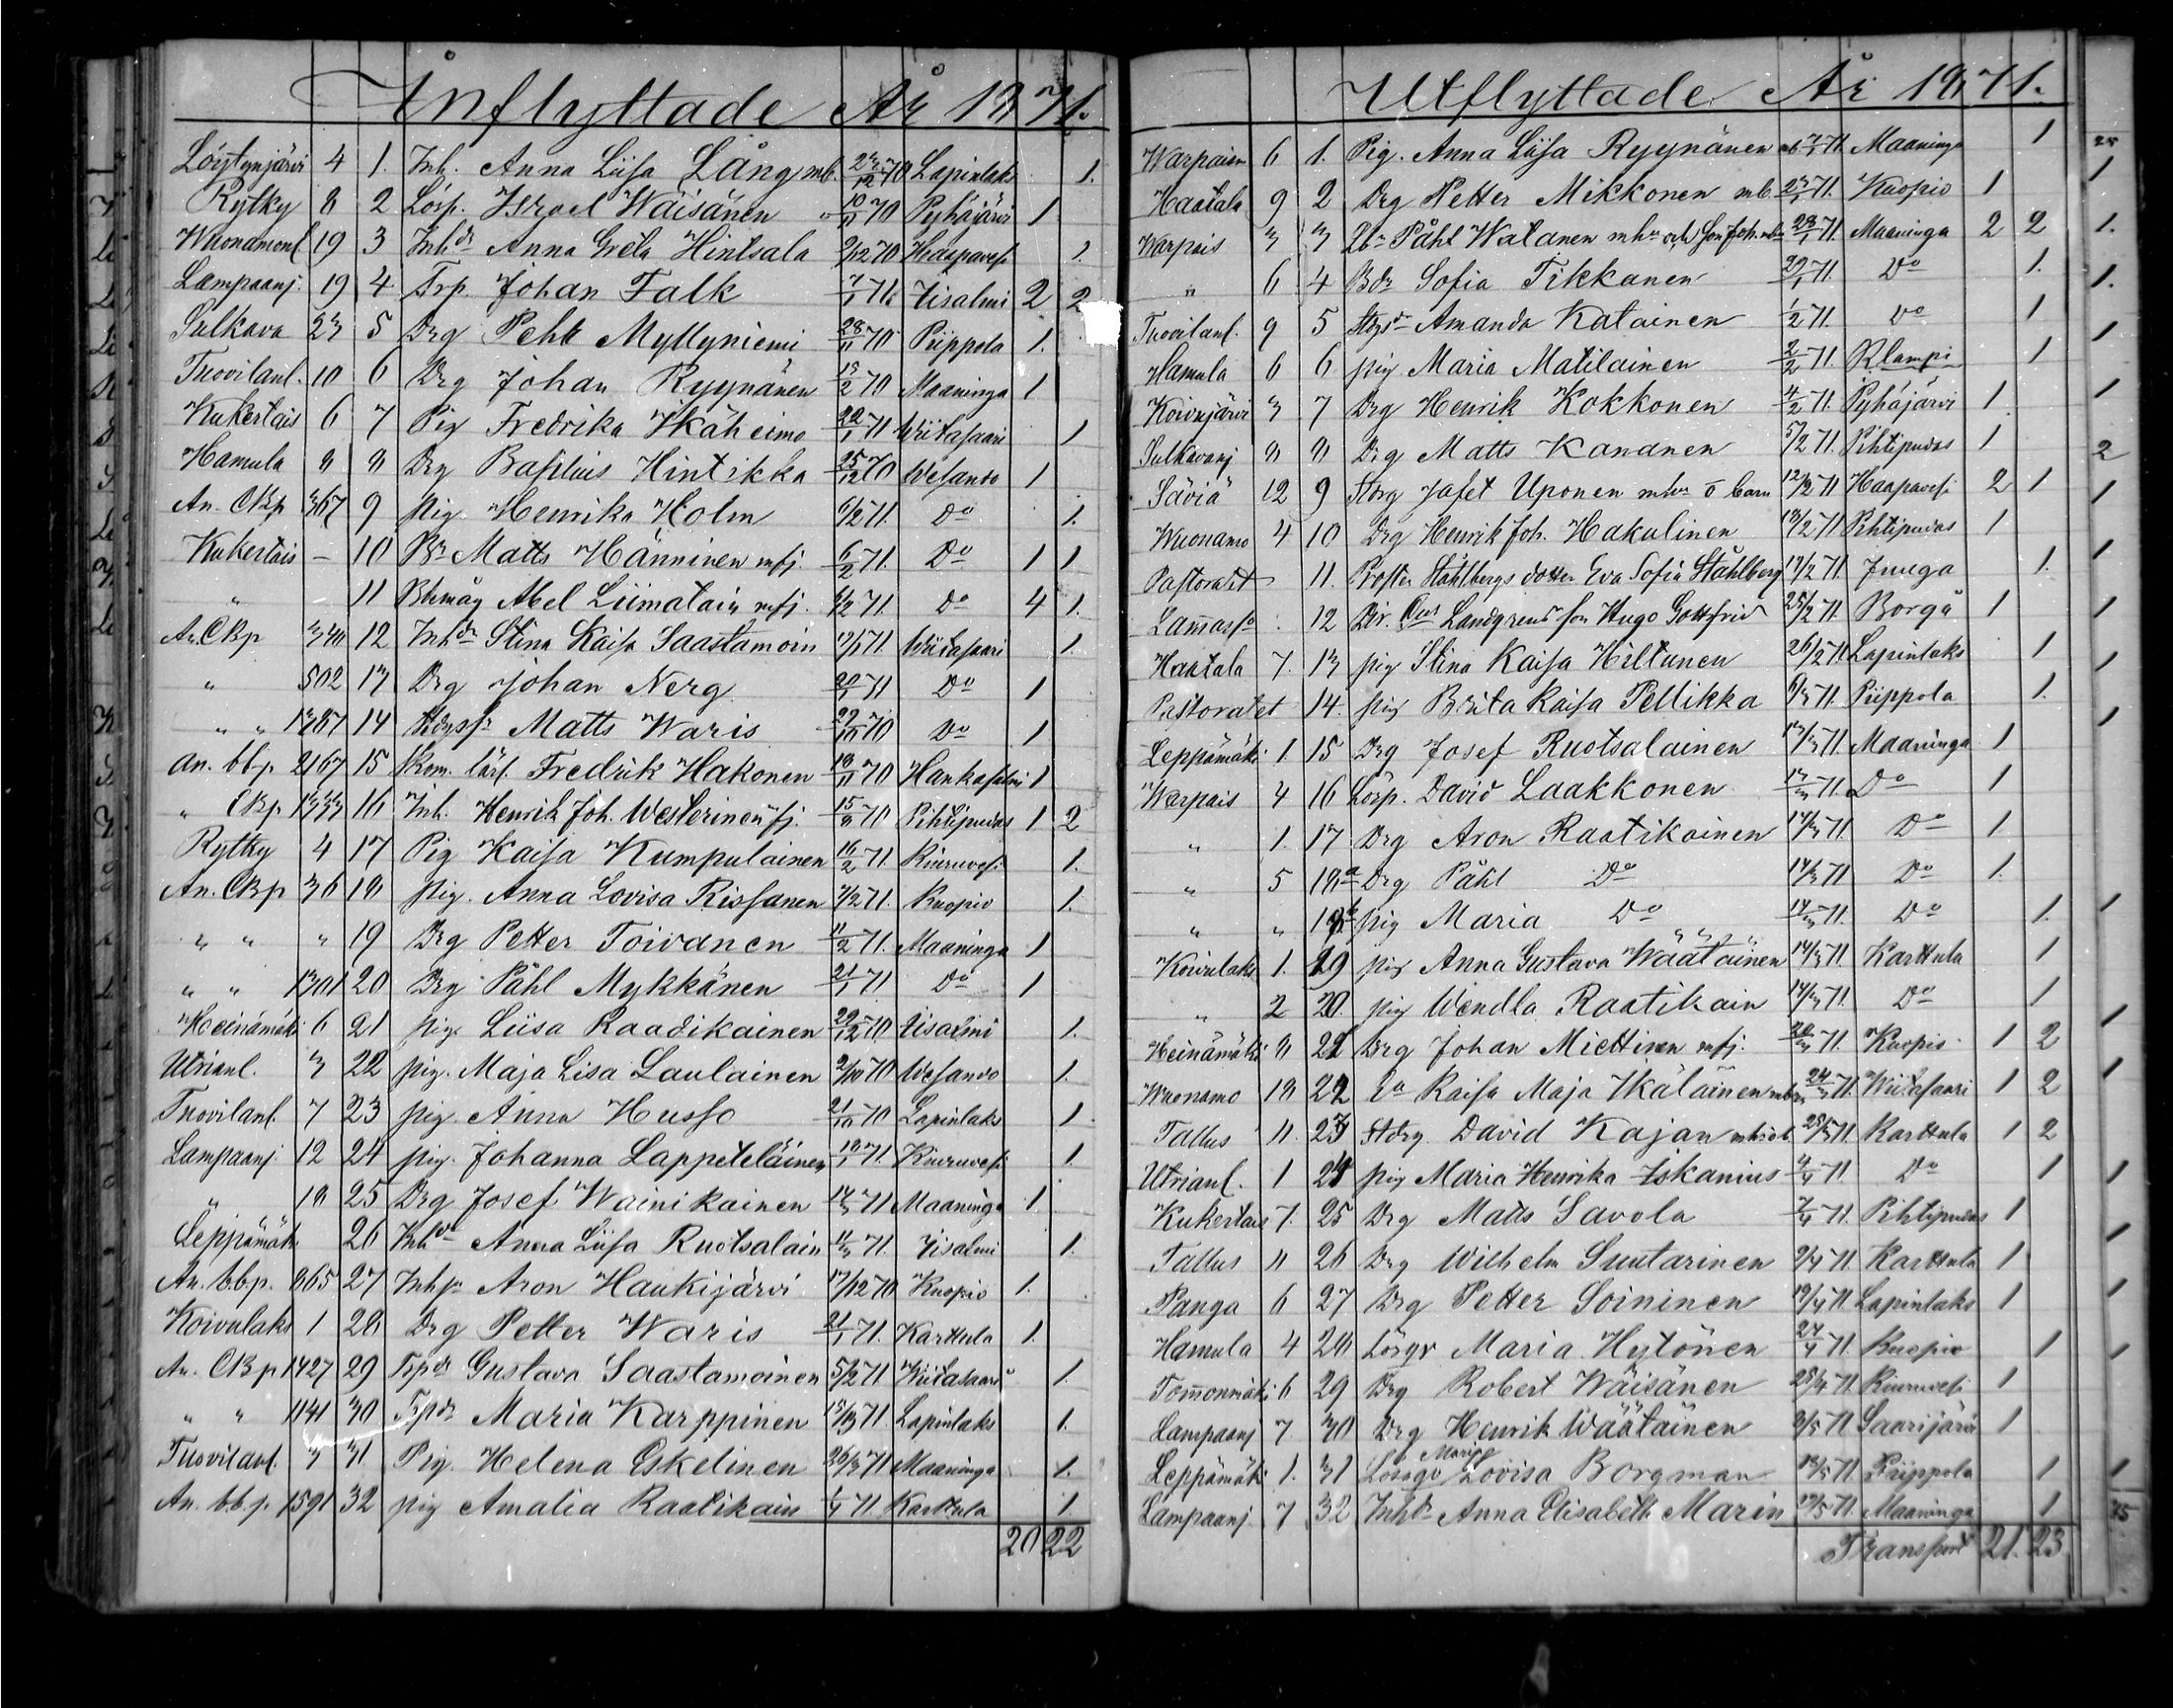 Inflyttade År 1871.
Löytynjärvi 4 1. Inh. Anna Liisa Lång mb. 23/12 70 Lapinlaks 1.
Rytky 8 2 Lösp. Israel Wäisänen " 10/11 70 Pyhäjärvi 1
Wuonamonl 19 3 Inhdr Anna Greta Hintsala 2/12 70 Haapavesi 1.
Lampaanj. 19 4 Trp. Johan Falk 7/1 71. Iisalmi 2 2
Sulkava 23 5 Drg Pehr Myllyniemi 28/11 70 Piippola 1.
Tuovilanl. 10 6 Drg Johan Ryynänen Maaninga 1
Kukertais 6 7 Pig Fredrika Ikäheimo 22/1 71 Wiitasaari 1
Hamula 8 8 Drg Basilius Hintikka 25/12 70 Wesando 1
An. CBp 367 9 pig. Henrika Holm 6/2 71. Do 1.
Kukertais – 10 Br Matts Hänninen mfj. 6/2 71. Do 1 1
" 11 Bhmåg Abel Liimatain mfj. 2/2 71 Do 4 1.
An. CBp 340 12 Inhdr Stina Kaisa Saastamoin 17/1 71. Wiitasaari 1.
" 502 13 Drg Johan Nerg 20/1 71 Do 1
" " 1387 14 Matts Waris 22/10 70 Do 1
An. bbp 2167 15 Skom. lärl. Fredrik Hakonen 18/11 70 Hankasalmi 1
" CBp 1333 16 Inh. Henrik Joh. Westerinen mfj. 15/11 70 Pihtipudas 1 2
Rytky 4 17 Pig Kaisa Kumpulainen 16/2 71. Kiuruvesi 1.
An. CBp 36 18 pig. Anna Lovisa Rissanen 7/2 71. Kuopio 1.
" " " 19 Drg Petter Toivanen 11/2 71. Maaninga 1
" " 1301 20 Drg Påhl Mykkänen 21/1 71 Do 1
Heinämäki 6 21 pig. Liisa Raadikainen 29/12 70 Iisalmi 1.
Utrianl. 3 22 pig. Maja Lisa Laulainen 2/10 70 Wesando 1.
Tuovilanl. 7 23 pig. Anna Husso 21/10 70 Lapinlaks 1
Lampaanj. 12 24 pig. Johanna Lappeteläinen 19/1 71. Kiuruvesi 1
" 18 25 Drg Josef Wainikainen 14/3 71 Maaninga 1.
Leppämäki 26 Inhdr Anna Liisa Ruotsalain 11/3 71. Iisalmi 1.
An. bbp. 865 27 Aron Haukijärvi 17/12 70 Kuopio 1.
Koivulaks 1 28 Drg Petter Waris 21/1 71. Karttula 1.
An. CBp 1427 29 Tspdr Gustava Saastamoinen 5/2 71 Wiitasaari 1.
" " 1141 30 Tspdr Maria Karppinen 15/3 71. Lapinlaks 1.
Tuovilanl. 3 31 Pig. Helena Eskelinen 26/3 71 Maaninga 1.
An. bbp. 1591 32 pig Amalia Raatikain 1/4 71. Karttula 1.
20 22
Utflyttade År 1871.
Warpaisn 6 1. Pig. Anna Liisa Ryynänen 71. Maaninga 1
Haatala 9 2 Drg Petter Mikkonen mb. 23/1 71. Kuopio 1
Warpais 3 3 Påhl Watanen mhu och son Joh. 28/1 71. Maaninga 2 2
" 6 4 Bdr Sofia Tikkanen 29/1 71. Do 1.
Tuovilanl. 9 5 Amanda Katainen 1/2 71. Do 1
Hamula 6 6 pig Maria Matilainen 2/2 71. Rlampi 1
Koivujärvi 3 7 Drg Henrik Kokkonen 4/2 71. Pyhäjärvi 1.
Sulkavanj 8 8 Drg Matts Kananen 5/2 71. Pihtipudas 1
Säviä 12 9 Stdrg Jafet Uponen mhu o barn 12/2 71 Haapavesi 2 1
Wuonamo 4 10 Drg Henrik Joh. Hakulinen 13/2 71 Pihtipudas 1
Pastoratet 11. Prosten Ståhlbergs dotter Eva Sofia Ståhlberg 17/2 71 Juuga 1.
12 Landgrens son Hugo Gottfrid 25/2 71. Borgå 1
Haatala 7. 13 pig Stina Kaisa Hiltunen 26/2 71 Lapinlaks 1
Pastoratet 14. pig Brita Kaisa Pellikka 71. Piippola 1.
Leppämäki 1. 15 Drg Josef Ruotsalainen 13/3 71. Maaninga 1
Warpais 4 16 Lösp. David Laakkonen 13/3 71. Do 1
" 1. 17 Drg Aron Raatikainen 14/3 71. Do 1
" 5 18a Drg Påhl Do 14/3 71 Do 1.
" " 18b pig Maria Do 14/3 71. Do 1.
Koivulaks 1. 19 pig Anna Gustava Wäätäinen 14/3 71. Karttula 1
" 2 20. pig Wendla Raatikain 14/3 71. Do 1
Heinämäki 8 21 Drg Johan Miettinen mfj. 20/3 71. Kuopio 1 2
Wuonamo 18 22 Ea Kaisa Maja Ikäläinen 24/3 71. Wiitasaari 1 2
Tallus 11. 23 Stdrg David Kajan 28/3 71. Karttula 1 2
Utrianl. 1 24 pig Maria Henrika Iskanius 4/4 71 Do 1
Kukertais 7. 25 Drg Matts Savola 7/4 71. Pihtipudas 1
Tallus 11 26 Drg Wilhelm Suutarinen 9/4 71. Karttula 1
Panga 6 27 Drg Petter Soininen 19/4 71. Lapinlaks 1
Hamula 4 28 Lösqv Maria Hytönen 27/4 71. Kuopio 1
Tommonmäki 6 29 Drg Robert Wäisänen 28/4 71. Kiuruvesi 1
Lampaanj 7. 30 Drg Henrik Wäätäinen 3/5 71 Saarijärvi 1
Leppämäki 1. 31 Lösqv Maria Lovisa Borgman 13/5 71. Piippola 1
Lampaanj 7 32 Inhdr Anna Elisabeth Marin 17/5 71. Maaninga 1
Transport 21. 23